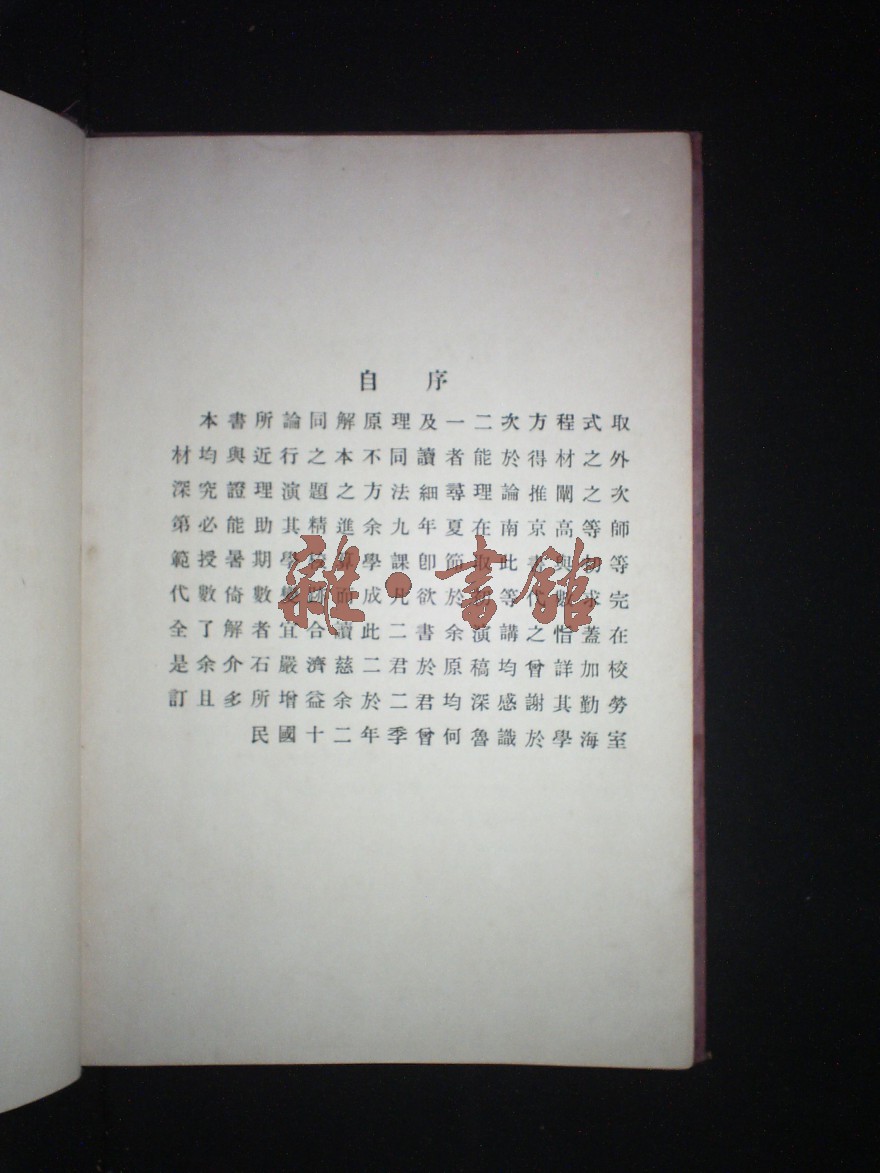 自序
本書所論同解原理及一二次方程式取
材均與近行之本不同讀者能於得材之外
深究證理演題之方法細尋理論推闡之次
第必能助其精進余九年夏在南京高等師
範授暑期學校算學課卽節取此書與初等
代數倚數變跡而成凡欲於初等代數求完
全了解者宜合讀此二書余演講之恉蓋在
是余介石嚴濟慈二君於原稿均曾詳加校
訂且多所增益余於二君均深感謝其勤勞
民國十二年季曾何魯識於學海室
雜·書館